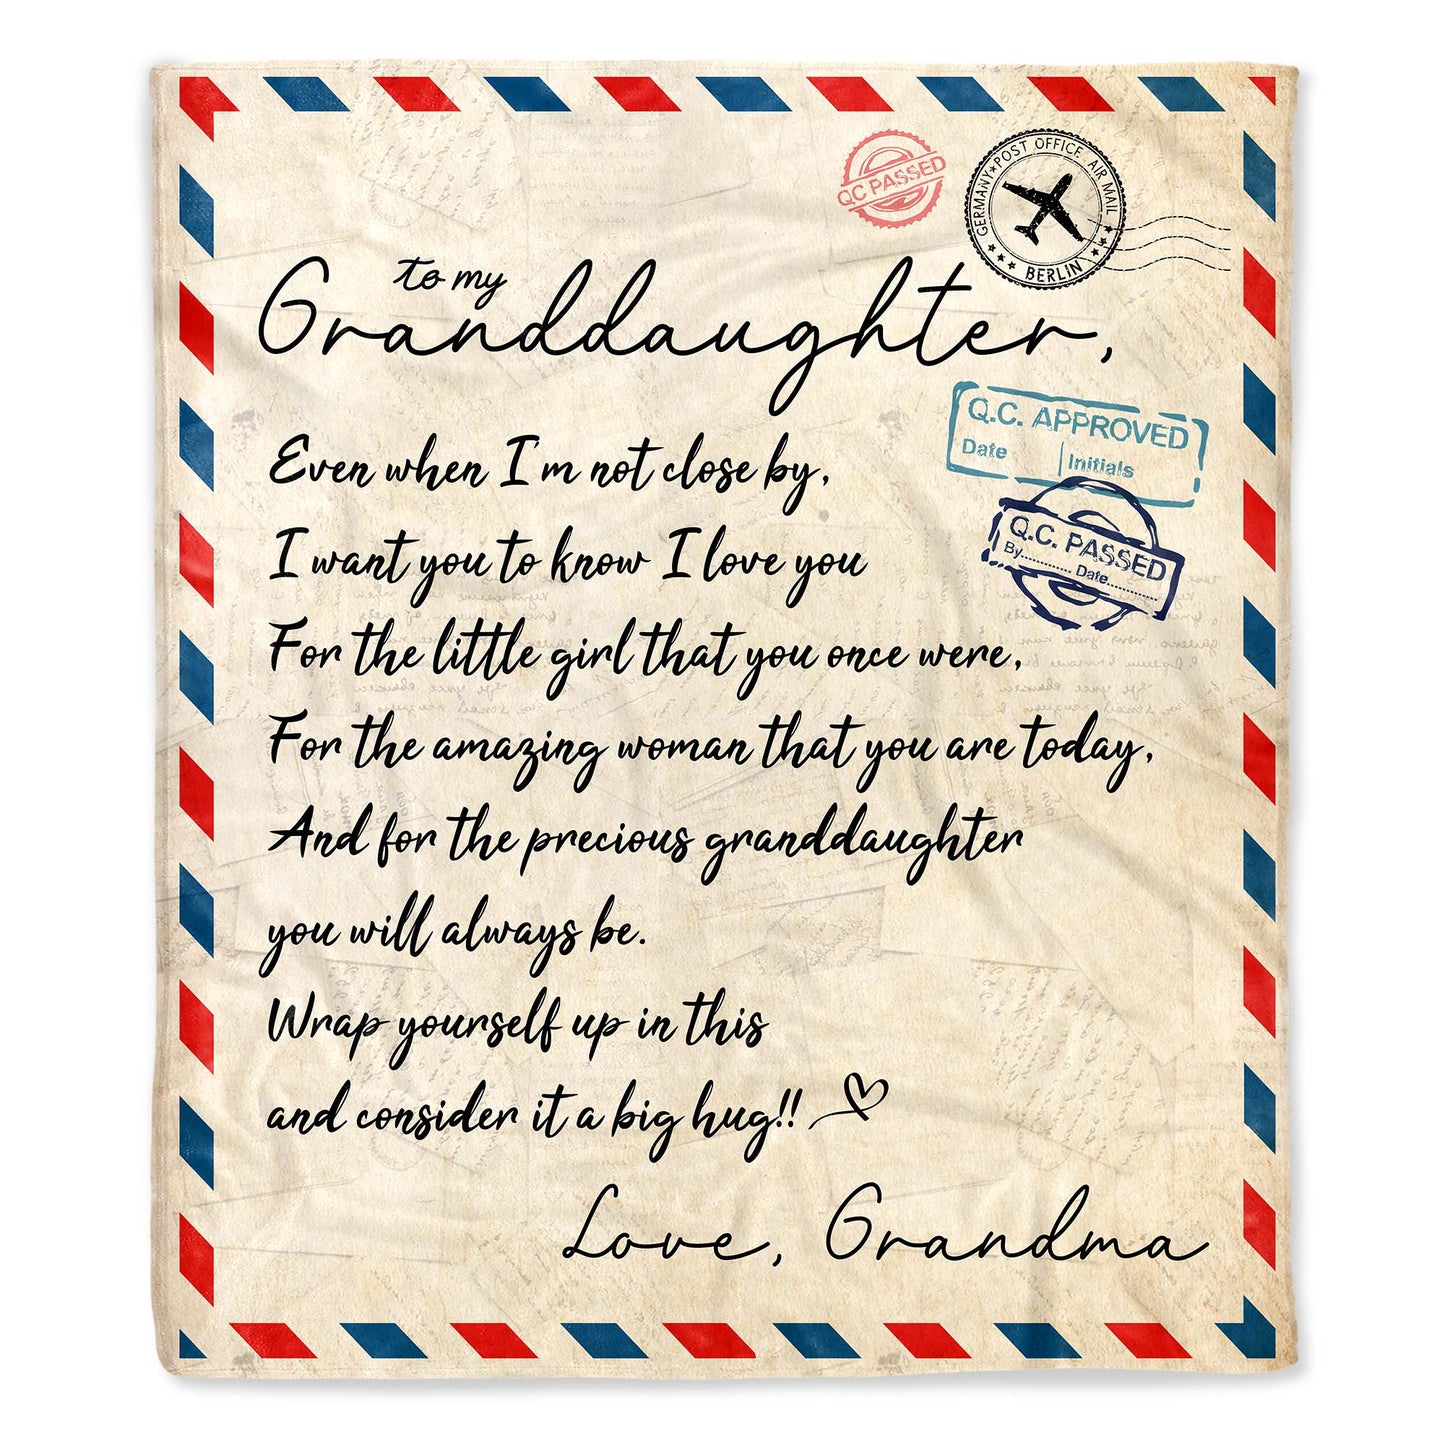 QC PASSED
GERMANY★POST OFFICE AIR MAIL
BERLIN
to my
Granddaughter,
Q.C. APPROVED
Date Initials
Q.C. PASSED
By............ Date............
Even when I'm not close by,
I want you to know I love you
For the little girl that you once were,
For the amazing woman that you are today,
And for the precious granddaughter
you will always be.
Wrap yourself up in this
and consider it a big hug!!
Love, Grandma